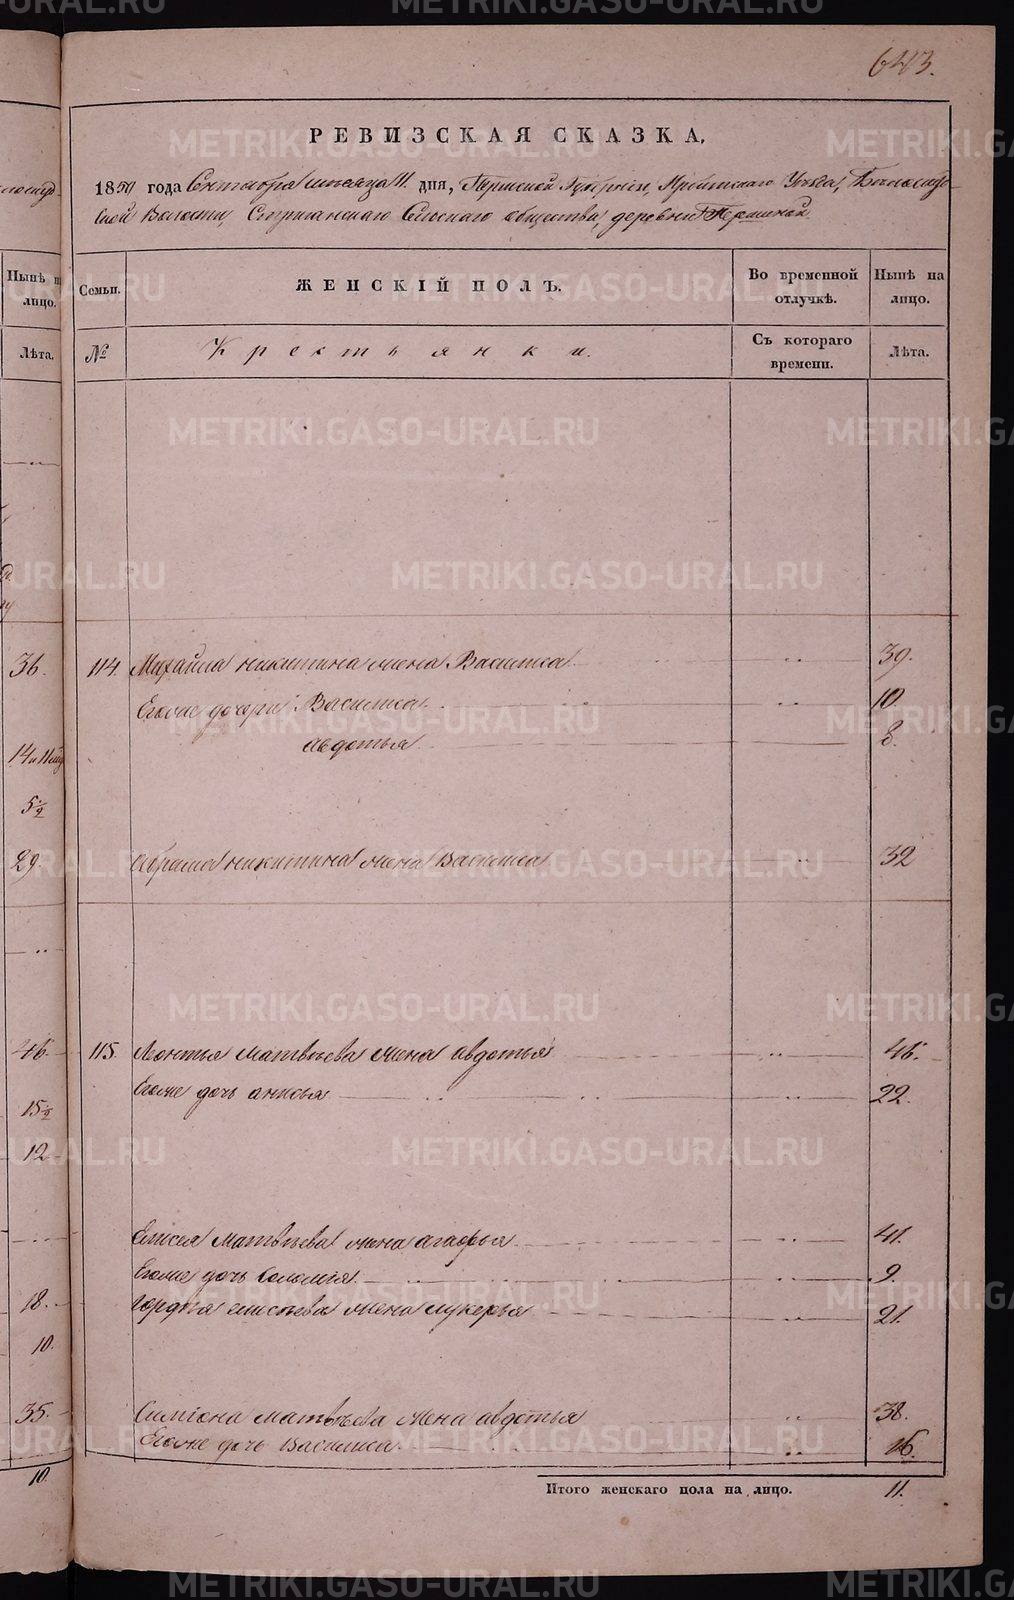 643.
РЕВИЗСКАЯ СКАЗКА.
1850 года Сентября месяца 11. дня, Пермской Губернии, Ирбитскаго Уезда, Белослуд-
ской Волости, Стриганскаго Сельскаго общества, деревни Першиной.
Нынѣ на лицо.
Семьи.
ЖЕНСКІЙ ПОЛЪ.
Во временной отлучкѣ.
Нынѣ на лицо.
Лѣта.
№
Крестьянки.
Съ котораго времени.
Лѣта.
36. 114. Михайла никитина жена Василиса 39.
Егоже дочери Василиса 10.
14 авдотья 8.
5½
29. Абрама никитина жена Василиса 32
46 115. Леонтья Матвѣева жена авдотья 46.
Егоже дочь анисья 22.
15½
12
Елисея Матвѣева жена агафья 41.
Егоже дочь Соломія 9.
18. Гордѣя елисѣева жена лукерья 21.
10.
35. Симіона матвѣева жена авдотья 38.
Егоже дочь Василиса 16.
10. Итого женскаго пола на лицо. 11.
METRIKI.GASO-URAL.RU